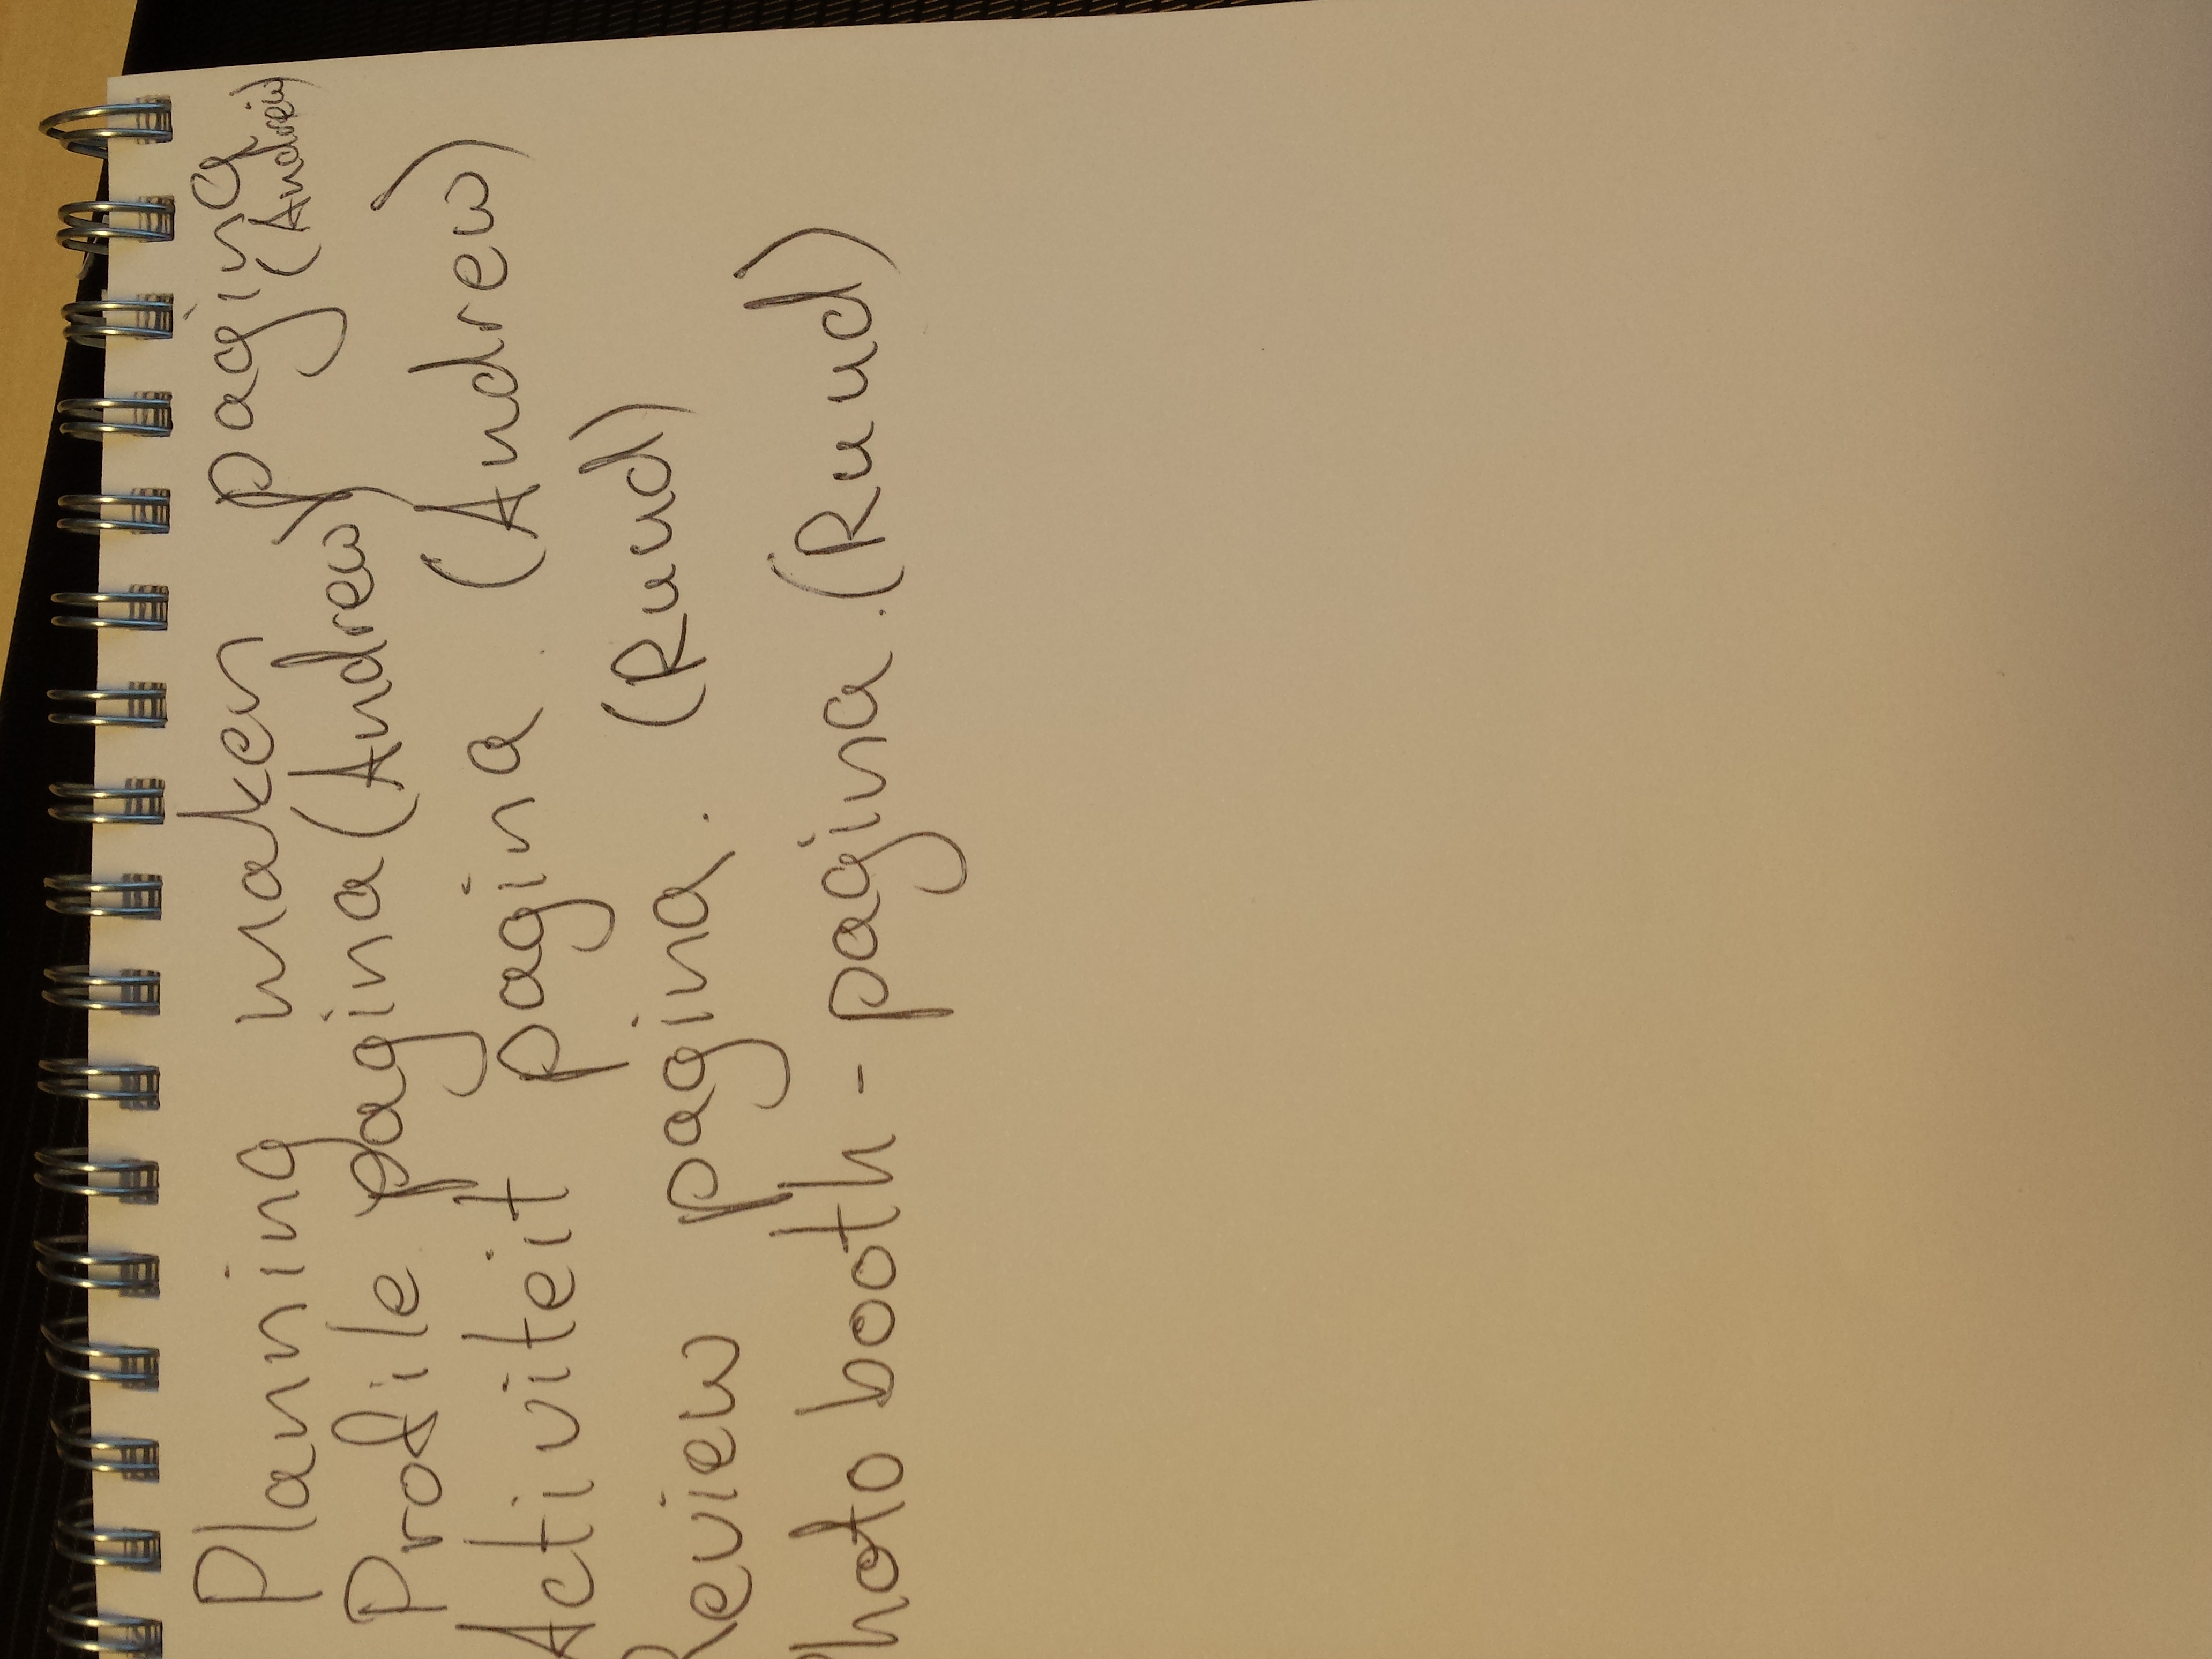 Planning maken pagina
(Andrew)
Profile pagina (Andrew)
Activiteit pagina. (Andrew)
Review pagina. (Ruud)
Photo booth - pagina. (Ruud)